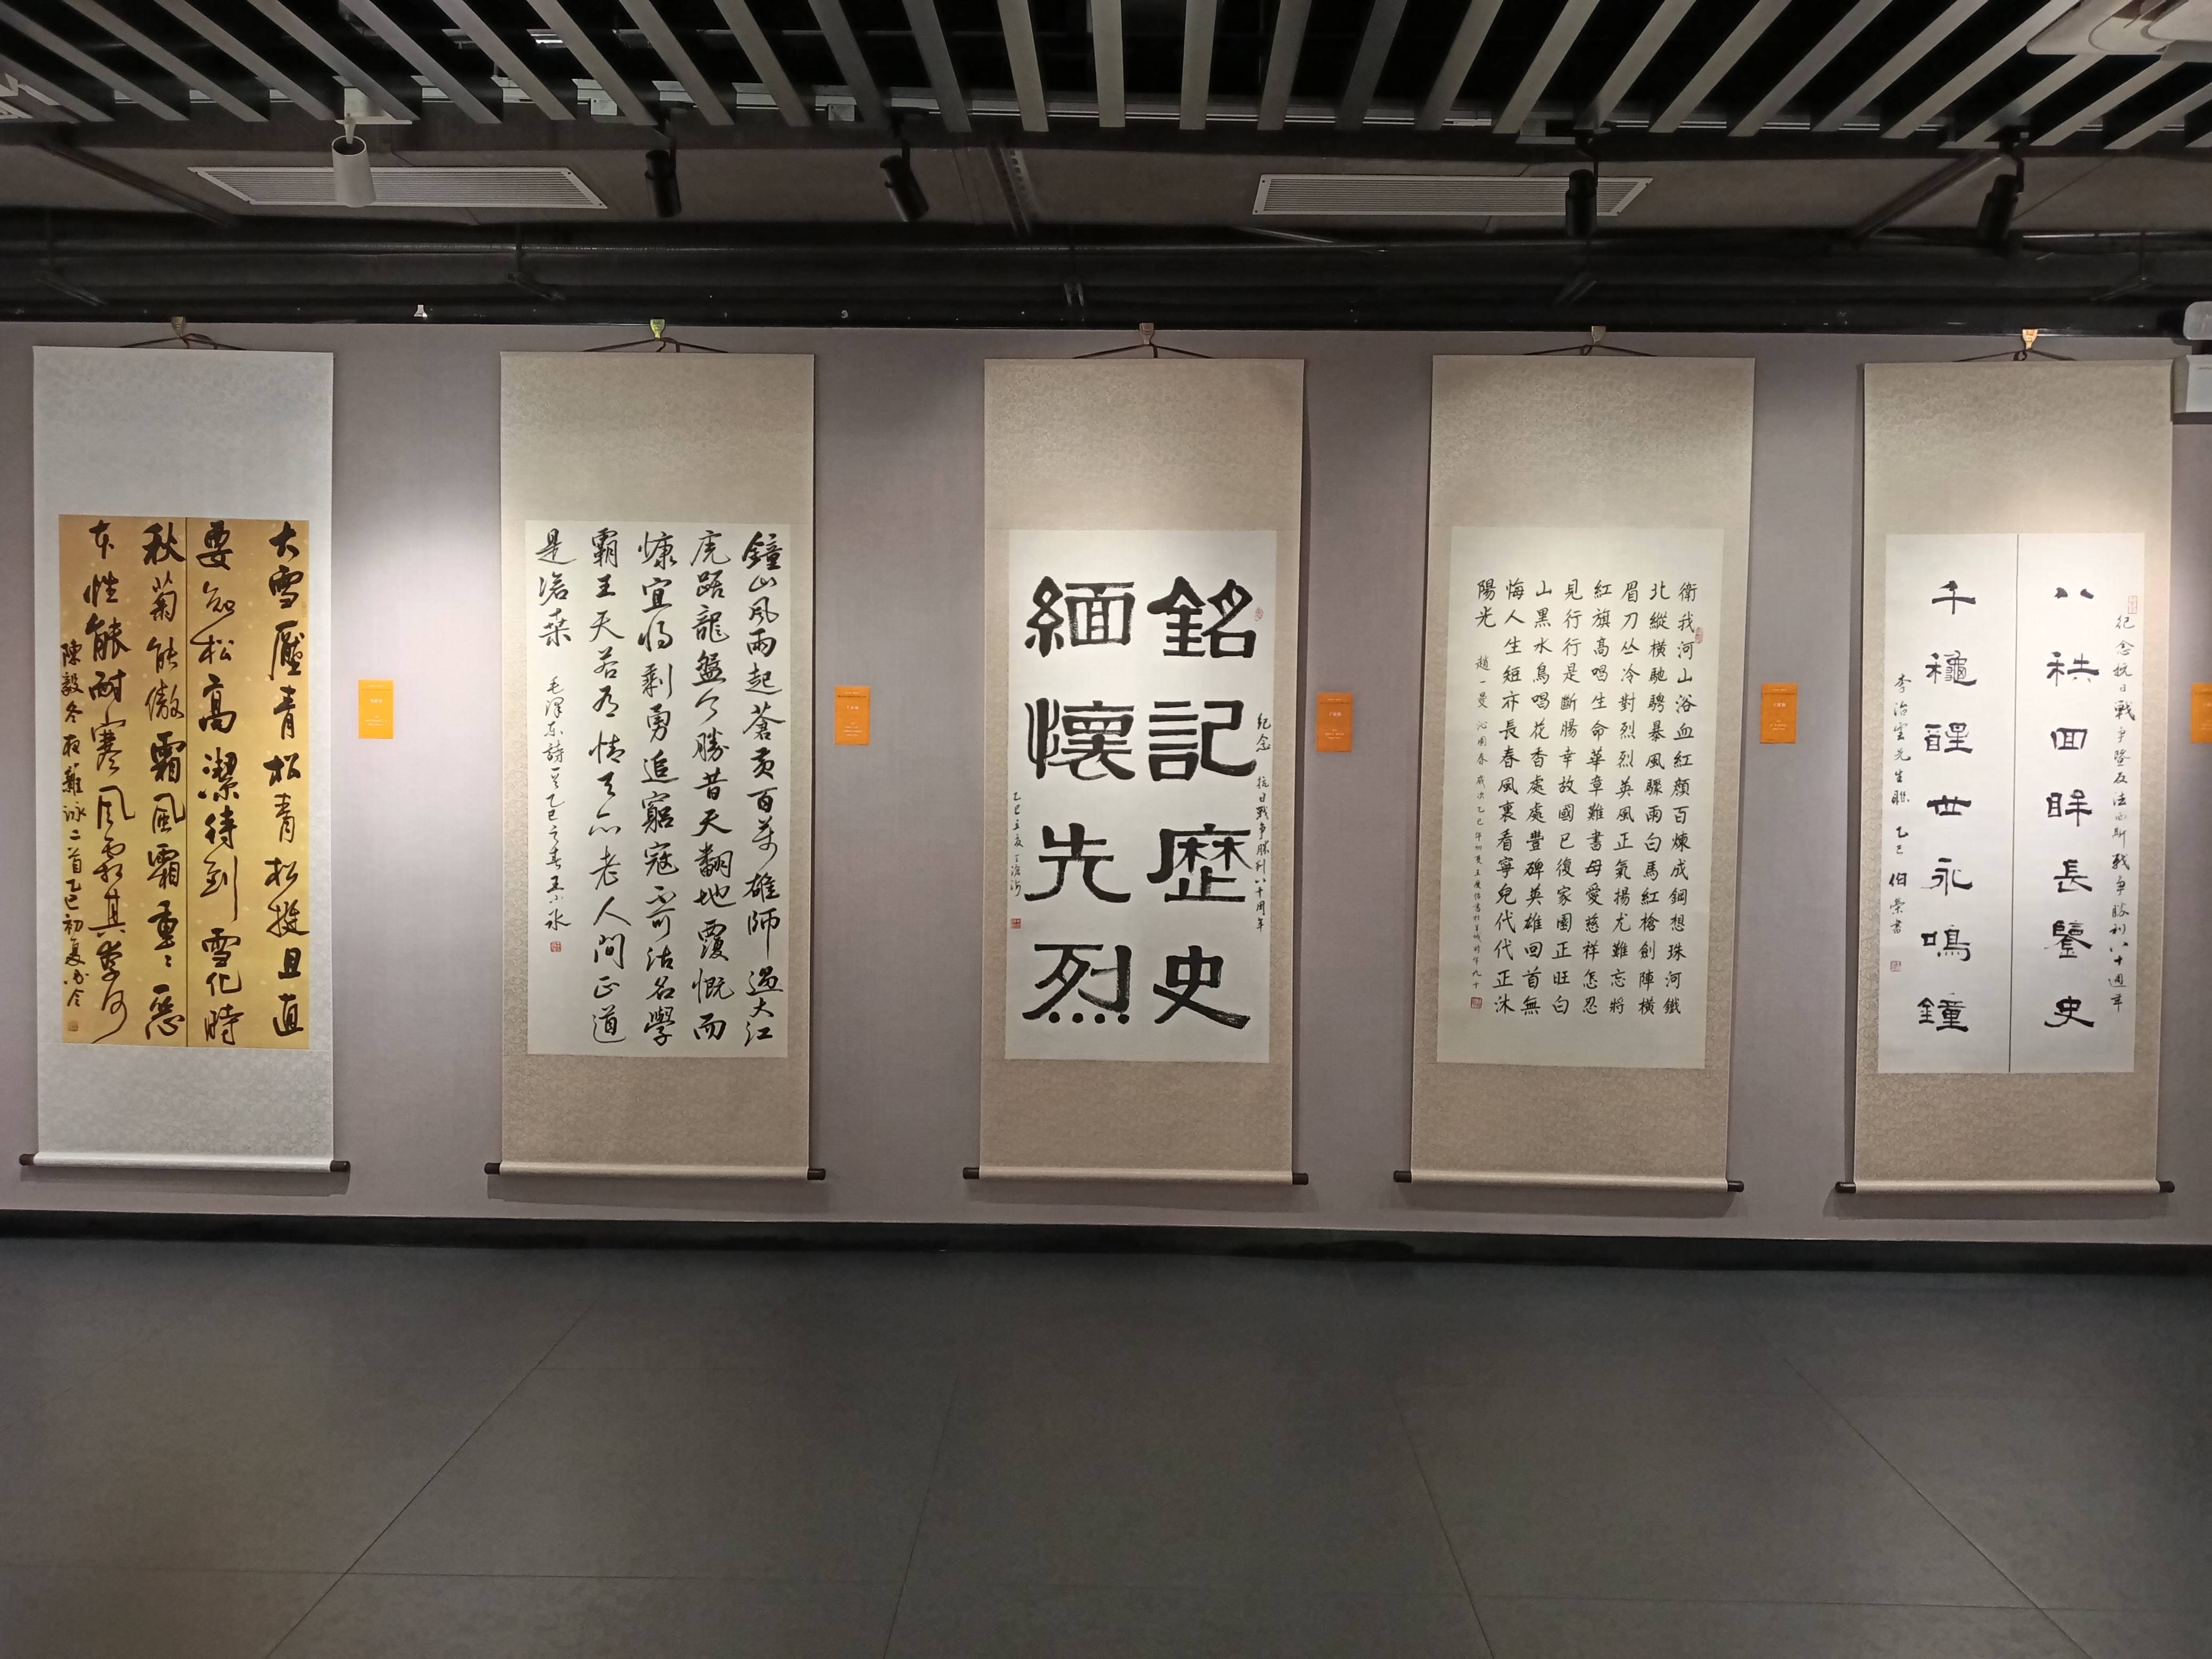 大雪壓青松青松挺且直
要知松高潔待到雪化時
秋菊能傲霜風霜重〻惡
本性能耐寒風霜其奈何
陳毅冬夜雜詠二首乙巳初夏
鐘山風雨起蒼黃百萬雄師過大江
虎踞龍盤今勝昔天翻地覆慨而
慷宜將剩勇追窮寇不可沽名學
霸王天若有情天亦老人間正道
是滄桑 毛澤東詩一首乙巳之春
紀念抗日戰爭勝利八十周年
銘記歷史
緬懷先烈
乙巳立夏
衛我河山浴血紅顏百煉成鋼想珠河鐵
北縱橫馳騁暴風驟雨白馬紅槍劍陣橫
眉刀丛冷對烈烈英風正氣揚尤難忘將
紅旗高唱生命華章難書母愛慈祥怎忍
見行行是斷腸幸故國已復家園正旺白
山黑水鳥唱花香處處豐碑英雄回首無
悔人生短亦長春風裏看寧兒代代正沐
陽光 趙一曼 沁園春 歲次乙巳年初夏
紀念抗日戰爭暨反法西斯戰爭勝利八十週年
八秩回眸長鑒史
千龝醒世永鳴鐘
李治 先生聯 乙巳 伯榮書